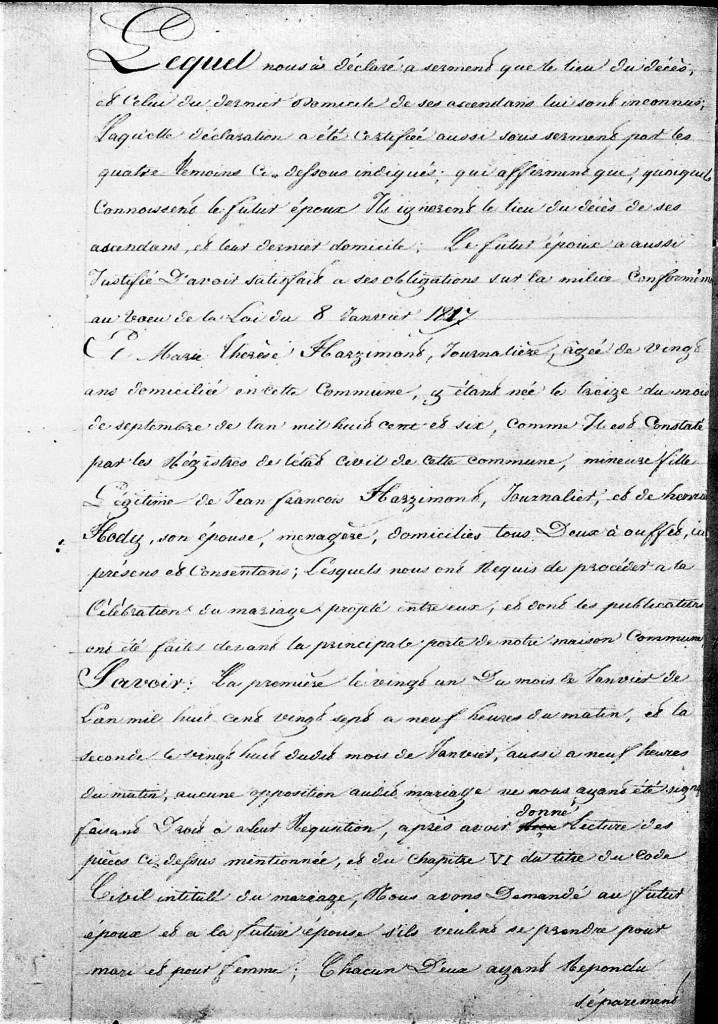 Lequel nous à déclaré a serment que le lieu du décès,
et celui du dernier domicile de ses ascendans lui sont inconnus;
Laquelle déclaration a été certifiée aussi sous serment par les
quatre témoins ci-dessous indiqués; qui affirment que, quoiquils
connoissent le futur époux Ils ignorent le lieu du décès de ses
ascendans, et leur dernier domicile; Le futur époux a aussi
Justifié D'avoir satisfait a ses obligations sur la milice Conformém
au voeu de la Loi du 8 Janvier 1817
Et Marie Thérèse Harzimont, Journalière, âgée de vingt
ans domiciliée en cette Commune, y étant née le treize du mois
de septembre de lan mil huit cent et six, comme Il est Constaté
par les Régistres de létat civil de cette commune, mineure fille
Légitime de Jean françois Harzimont, Journalier, et de henri
Hody, son épouse, menagère, domiciliés tous Deux à ouffet, ici
présens et Consentans; Lesquels nous ont Requis de procéder a la
Célébration du mariage projté entre eux, et dont les publications
ont été faites devant la principale porte de notre maison Commune,
Savoir: La première le vingt un Du mois de Janvier de
Lan mil huit cent vingt sept a neuf heures du matin, et la
seconde le vingt huit dudit mois de Janvier, aussi a neuf heures
du matin, aucune opposition audit mariage ne nous ayant été signi
faisant Droit à leur Requition, après avoir donné Lecture des
pièces ci-dessus mentionnée, et du chapitre VI du titre du Code
Civil intitulé du mariage, Nous avons Demandé au futur
époux et a la future épouse s'ils veulent se prendre pour
mari et pour femme; Chacun D'eux ayant Repondu
séparement